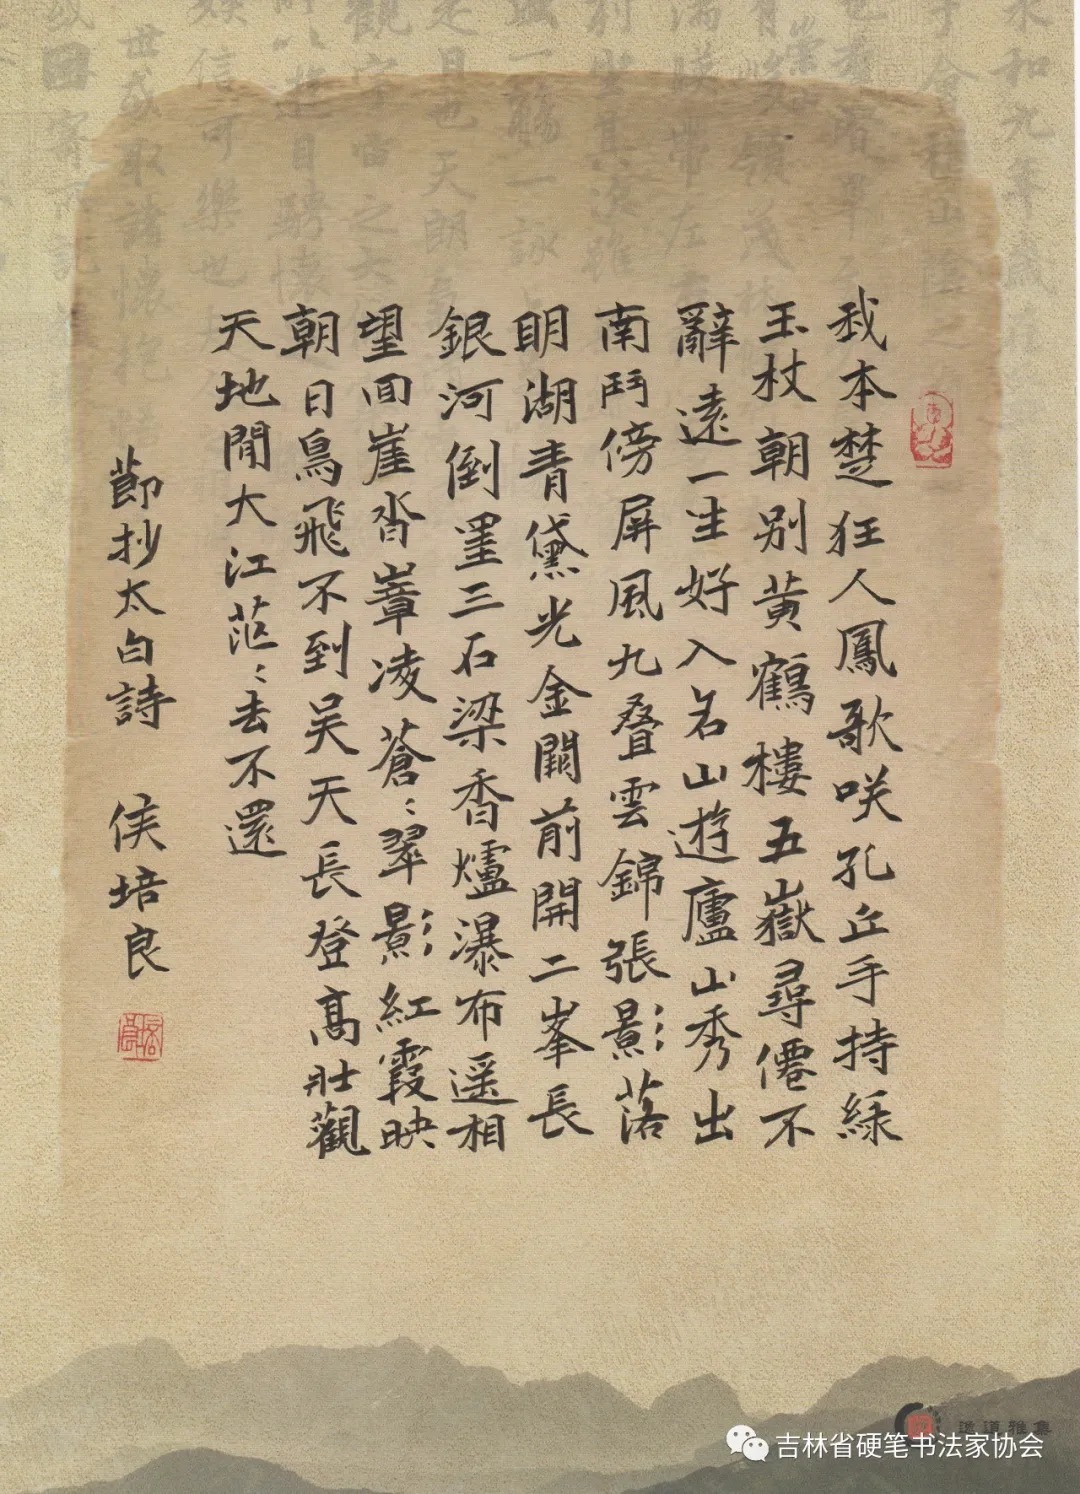 我本楚狂人鳳歌咲孔丘手持綠
玉杖朝别黄鶴樓五嶽尋僊不
辭遠一生好入名山遊廬山秀出
南鬥傍屏風九叠雲錦張影落
明湖青黛光金闕前開二峯長
銀河倒罣三石梁香爐瀑布遥相
望回崖沓嶂凌蒼〻翠影紅霞映
朝日鳥飛不到吴天長登高壯觀
天地間大江茫〻去不還
節抄太白詩 侯培良
吉林省硬笔书法家协会